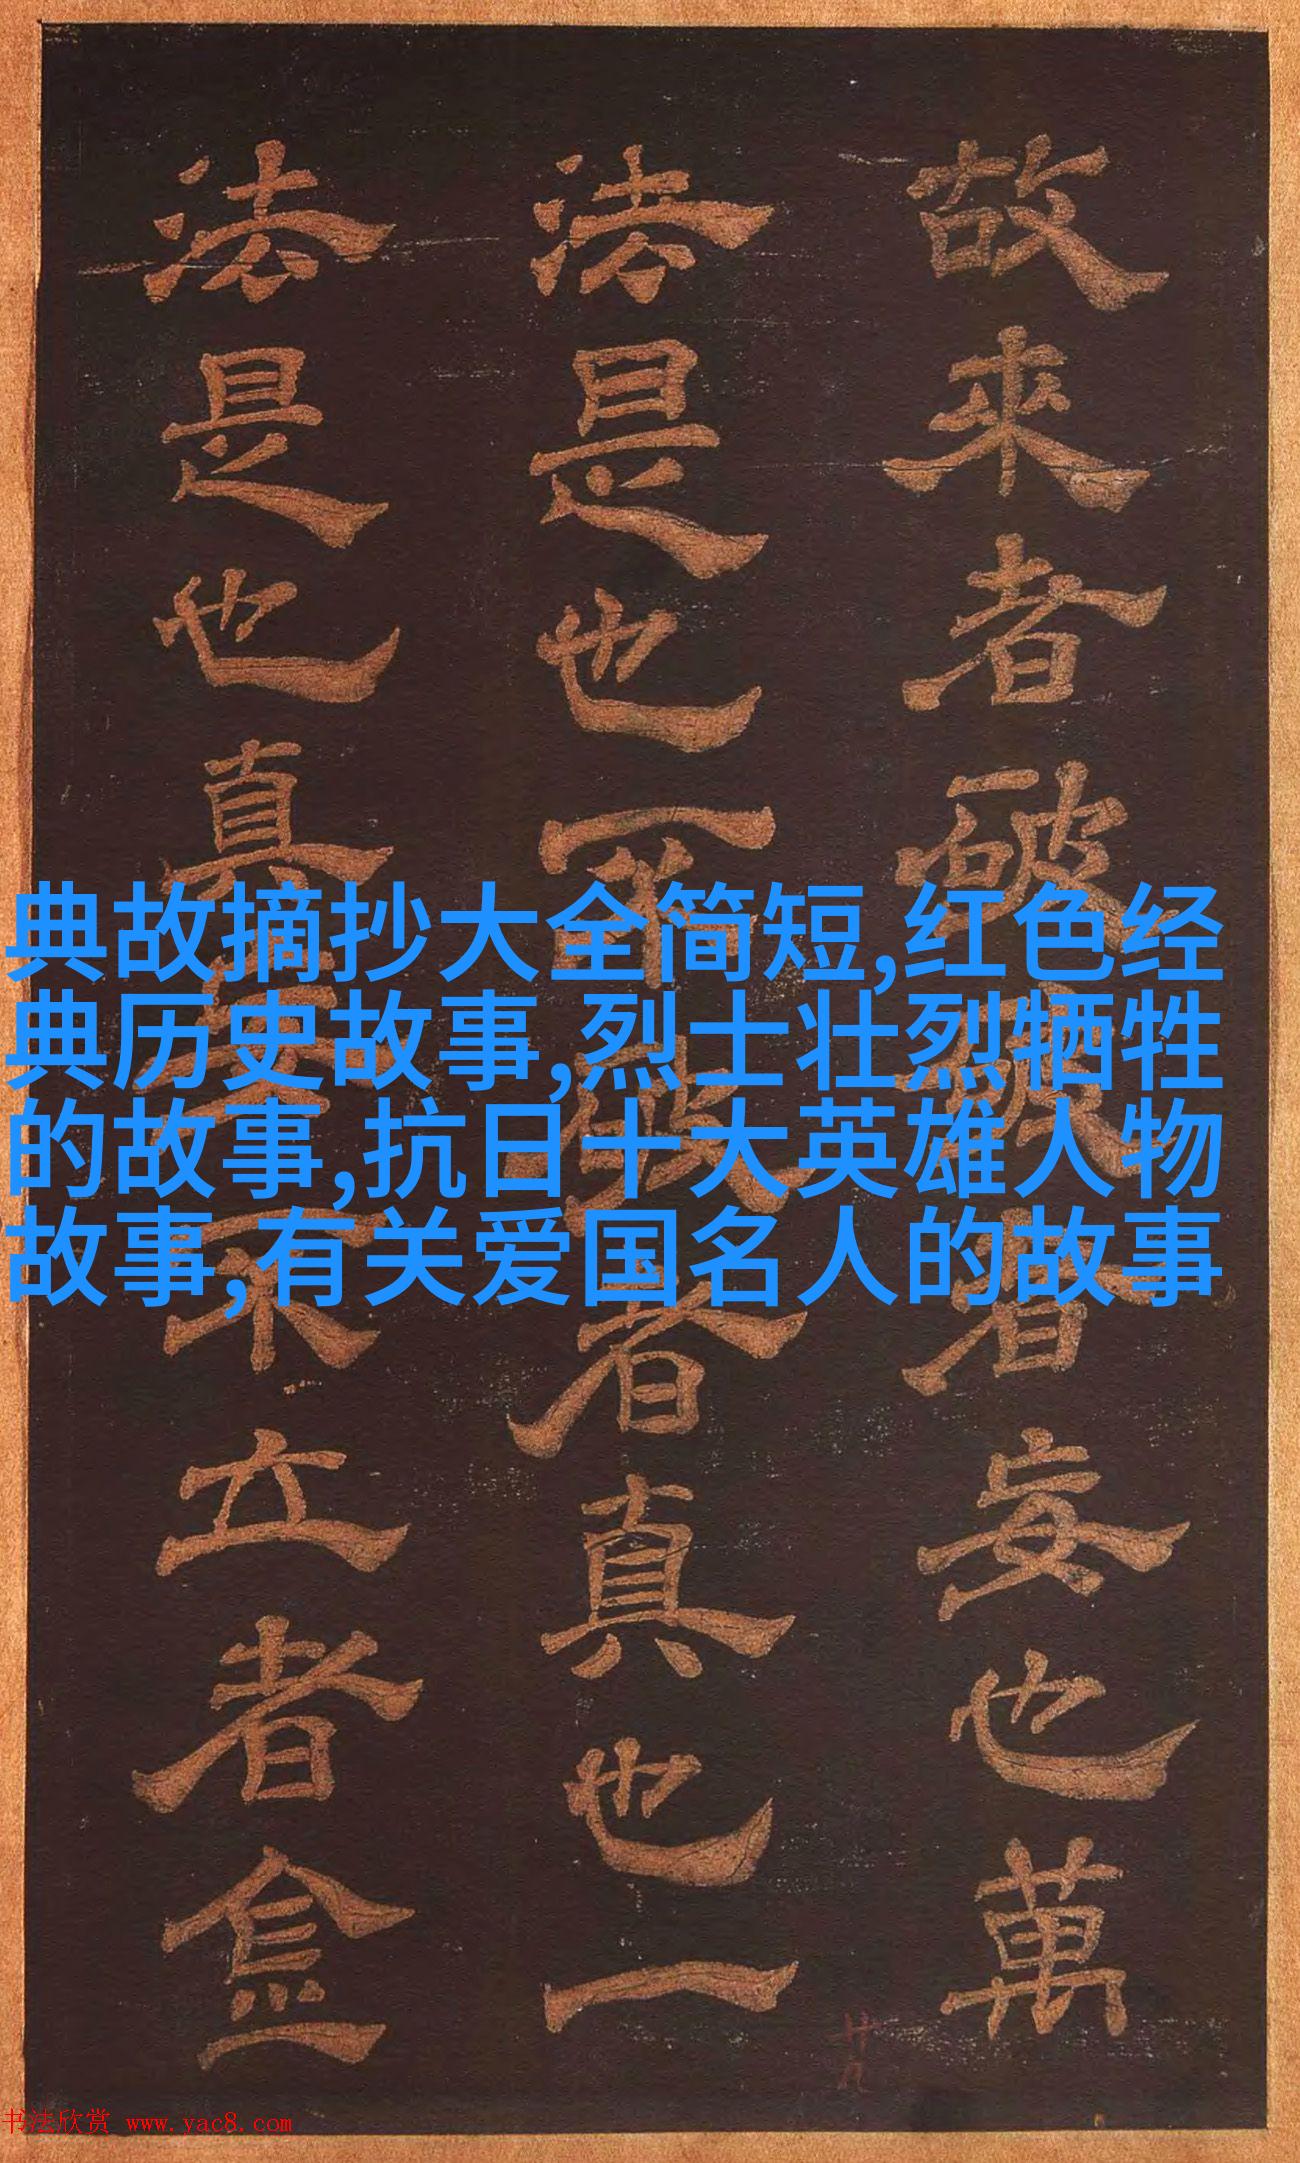 故來者破破者妄也萬
法是也不破者真也一
法是也真空不立者
典故摘抄大全简短,红色经
典历史故事,烈士壮烈牺牲
的故事,抗日十大英雄人物
故事,有关爱国名人的故事
廿九
书法欣赏 www.yac8.com